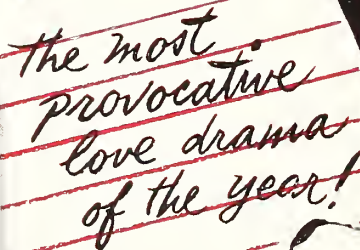 The most
provocative
love drama
of the year!